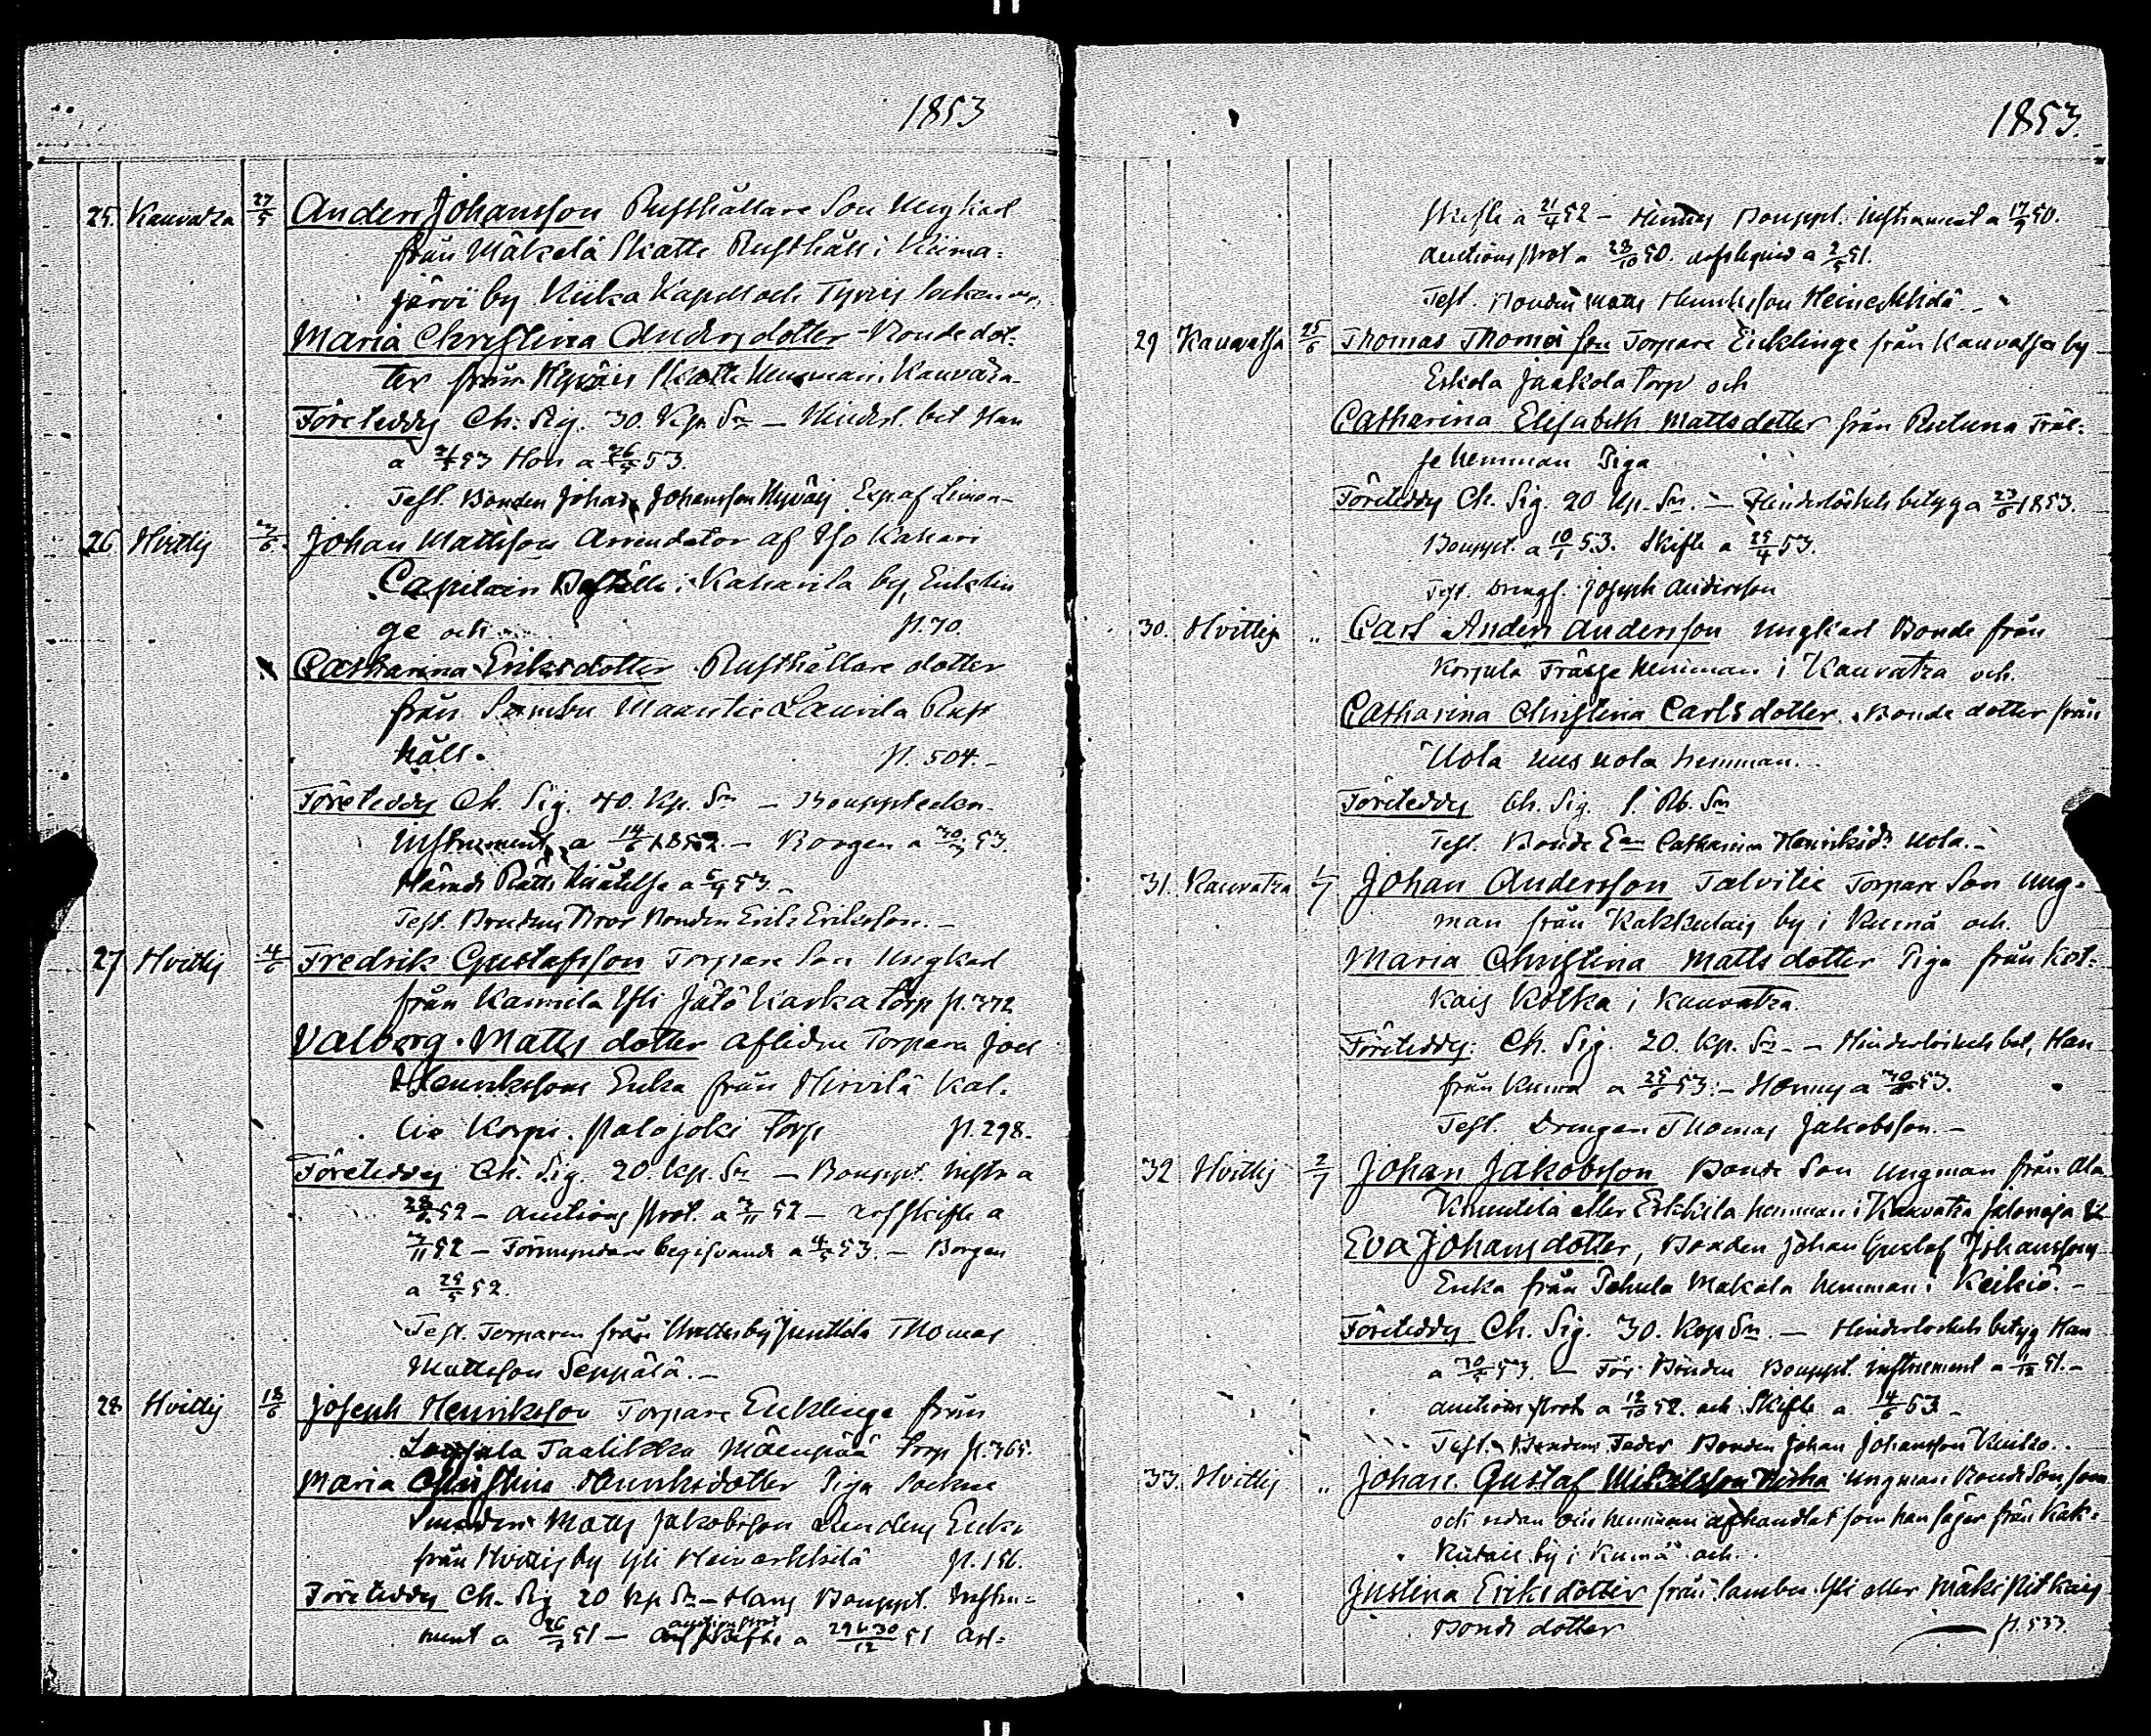 1853
25. Kauvatza 27/5 Anders Johansson Rusthållare Son Ungkarl
från Mäkelä Skatte Rusthåll i Kiima-
järvi by Kiika Kapell och Tyrvis Socken och
Maria Christina Andersdotter Bondedot-
ter från Hyväis Skatte Hemman i Kauvatza
Företeddes Ch. Sig. 30. Kop. Sr – Hindersl. bet Han
a 53 Hon a 26/5 53.
Test. Bonden Johan Johansson Hyväis
26 Hvittis Johan Mattsson Arrendator af Iso Kahari
Capitain Boställe i Kaharila by, Enklin
ge och p. 70.
Catharina Eriksdotter Rusthållare dotter
från Sambu Laurila Rust
håll. p. 504.
Företeddes Ch. Sig. 40. Kop. Sr – Bouppteckn.
Instrument a 1852. – Borgen a 53.
Härads Rätts a 53. –
Test. Brudens Bror Bonden Erik Eriksson. –
27 Hvittis 4/6 Fredrik Gustafsson Torpare Son Ungkarl
från Torp p. 372
Valborg Matts dotter aflidne Torparn Joel
Henrikssons Enka från Hirvilä Kal-
lio Korpi. Palojoki Torp p. 298.
Företeddes Ch. Sig. 20. Kop. Sr – Bouppt. Instr a
52 – Auctions Prot. a 3/11 52 – arfskifte a
3/11 52 – Förmyndare a 4/5 53. – Borgen
a 52.
Test. Torparen från Junttila Thomas
Mattsson Seppälä. –
28 Hvittis 18/6 Joseph Henriksson Torpare Enklinge från
Taalikka Mäenpää Torp p. 365.
Maria Christina Henriksdotter Piga Sockne
Smeden Matts Jakobsson Lindens Enka
från Hvittis by Yli p. 156.
Företeddes Ch. Sig 20 Kop Sr – Hans Bouppt. Instru-
ment a 51 – auctions prot a 29 & 30/12 51 Arf-
1853.
Skifte a 21/4 52 – Hennes Bouppt. Instrument a 50.
Auctions Prot a 28/10 50. a 51.
Test. Bonden Matts Henriksson
29 Kauvatsa 25/6 Thomas Thomæ son Torpare Enklinge från Kauvatsa by
Eskola Jaakola Torp och
Catharina Elisabeth Mattsdotter från Fräl-
se hemman Piga
Företeddes Ch. Sig. 20 Kop. Sr. – Hinderlöshets betyg a 23/6 1853.
Bouppt. a 10/1 53. Skifte a 25/4 53.
Test. Dreng. Joseph Andersson
30. Hvittis „ Carl Anders Andersson Ungkarl Bonde från
Korjula Frälse Hemman i Kauvatza och
Catharina Christina Carlsdotter. Bonde dotter från
Uola hemman.
Företeddes Ch. Sig. 1. Rb. Sr
Test. Bonde Catharina Henriksdr Uola. –
31. Kauvatza 1/7 Johan Andersson Talvitie Torpare Son Ung-
man från Kakkulais by i Kumå och
Maria Christina Mattsdotter Piga från Kot-
kais Kotka i Kauvatza.
Företeddes: Ch. Sig. 20. Kop. Sr. – Hinderlöshets bet, Han
från Kumå a 25/6 53: – Hennes a 53.
Test. Drengen Thomas Jakobsson. –
32 Hvittis 2/7 Johan Jakobsson Bonde Son Ungman från Ala
Knuutila eller Erkkilä hemman i Kauvatza
Eva Johansdotter, Bonden Johan Gustaf Johanssons
Enka från Makala hemman i Keikiö. –
Företeddes Ch. Sig. 30. Kop Sr. – Hinderloshets betyg Han
a 53. – För Bruden Bouppt. instrument a 51. –
Auctions prot a 52. och Skifte a 14/6 53 –
Test. Brudens Fader Bonden Johan Johansson
33. Hvittis „ Johan Gustaf Mikelsson Ungman Bonde Son, som
från Kak-
i Kumå och.
Justina Eriksdotter från Sambu Yli eller Mäki Pitkäis
Bonde dotter p. 533